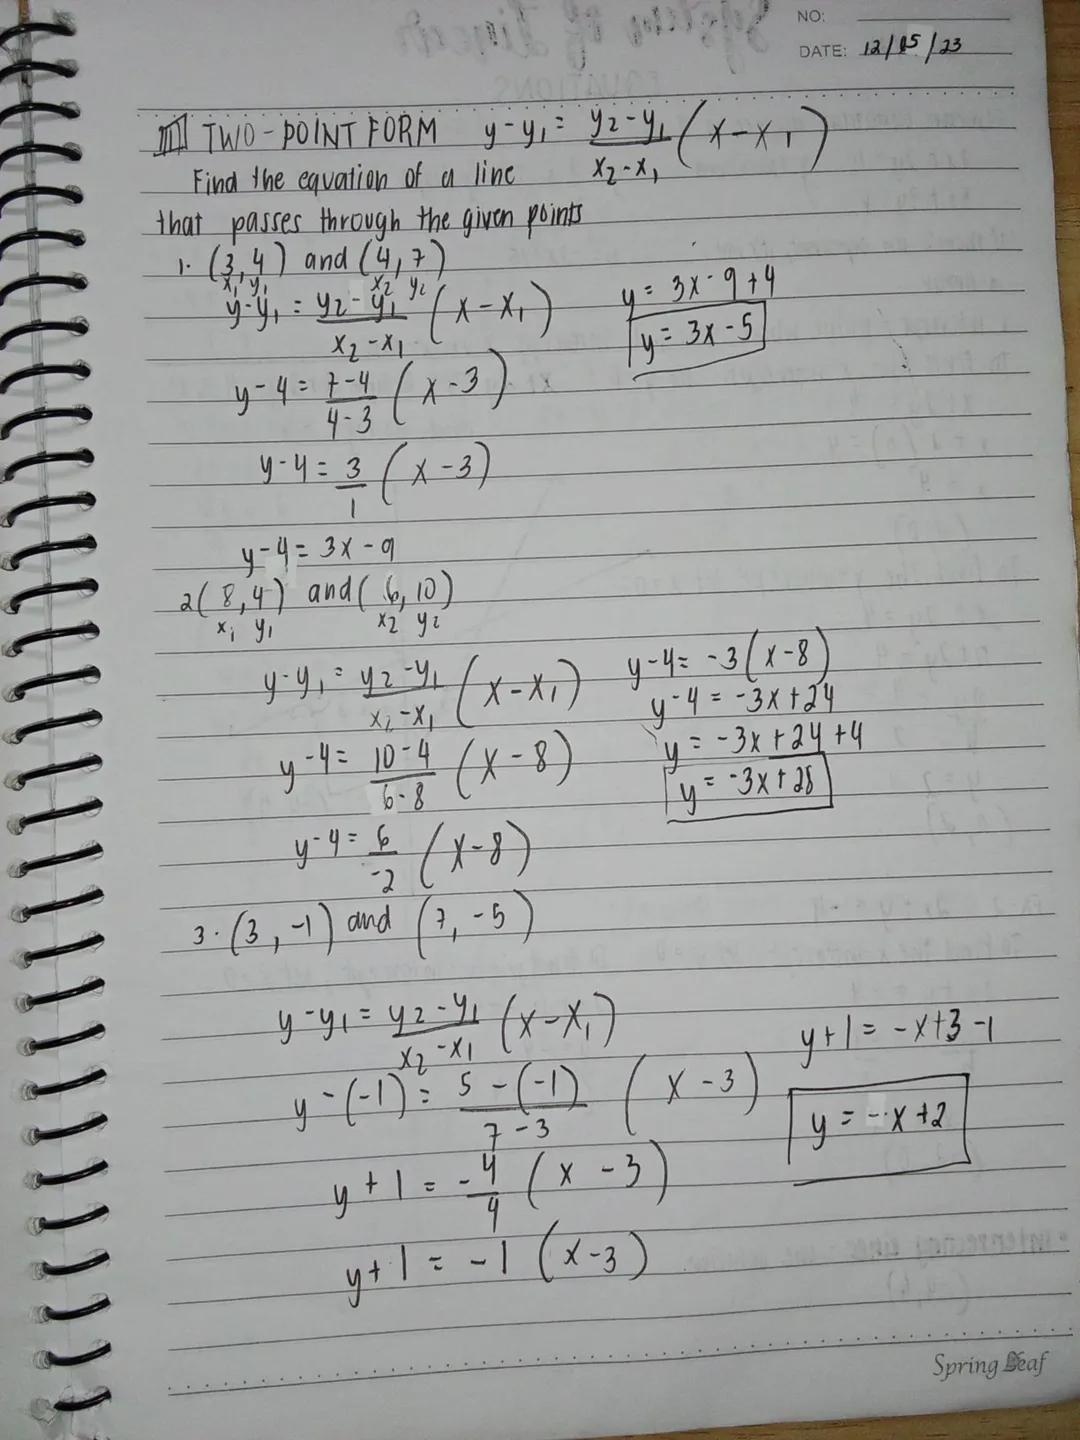 NO:
DATE: 12/05/23
III TWO-POINT FORM y-y₁ = y₂-y₁/x₂-x₁ (x-x₁)
Find the equation of a line
that passes through the given points
1. (3,4) and (4,7)
x₁ y₁ x₂ y₂
y-y₁ = y₂-y₁/x₂-x₁ (x-x₁)
y-4 = 7-4/4-3 (x-3)
y-4 = 3/1 (x-3)
y-4 = 3x-9
y = 3x-9+4
y = 3x-5
2 (8,4) and (6,10)
x₁ y₁ x₂ y₂
y-y₁ = y₂-y₁/x₂-x₁ (x-x₁)
y-4 = 10-4/6-8 (x-8)
y-4 = 6/-2 (x-8)
y-4 = -3(x-8)
y-4 = -3x+24
y = -3x+24+4
y = -3x+28
3. (3,-1) and (7,-5)
y-y₁ = y₂-y₁/x₂-x₁ (x-x₁)
y-(-1) = 5-(-1)/7-3 (x-3)
y+1 = -4/4 (x-3)
y+1 = -1 (x-3)
y+1 = -x+3-1
y = -x+2
Spring Leaf